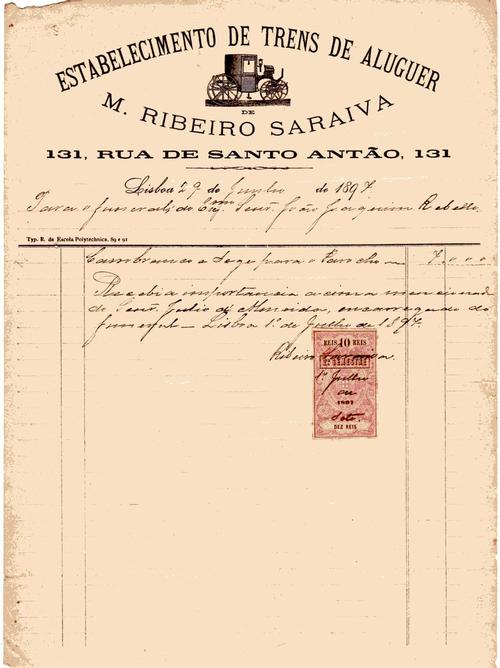 ESTABELECIMENTO DE TRENS DE ALUGUER
DE
M. RIBEIRO SARAIVA
131, RUA DE SANTO ANTÃO, 131
Lisboa 29 de Junho de 1897
Para o funeral do Exmo Senr. João Joaquim Rebello
Typ. R. da Escola Polytechnica, 89 e 91
e sege para o Parocho 7.000
Recebi a importancia acima mencionada
do Senr. Julio de Almeida, encarregado do
funeral - Lisboa 1º de Julho de 1897.
Ribeiro Saraiva.
REIS 10 REIS
1º Julho
1897
DEZ REIS